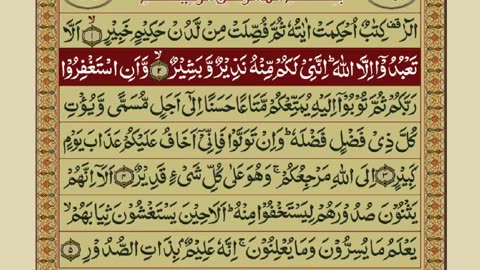 الٓرٰ ۟ كِتٰبٌ اُحْكِمَتْ اٰیٰتُهٗ ثُمَّ فُصِّلَتْ مِنْ لَّدُنْ حَكِیْمٍ خَبِیْرٍ ۙ﴿۱﴾ اَلَّا
تَعْبُدُوْۤا اِلَّا اللّٰهَ ؕ اِنَّنِیْ لَكُمْ مِّنْهُ نَذِیْرٌ وَّ بَشِیْرٌ ۙ﴿۲﴾ وَّ اَنِ اسْتَغْفِرُوْا
رَبَّكُمْ ثُمَّ تُوْبُوْۤا اِلَیْهِ یُمَتِّعْكُمْ مَّتَاعًا حَسَنًا اِلٰۤی اَجَلٍ مُّسَمًّی وَّ یُؤْتِ
كُلَّ ذِیْ فَضْلٍ فَضْلَهٗ ؕ وَ اِنْ تَوَلَّوْا فَاِنِّیْۤ اَخَافُ عَلَیْكُمْ عَذَابَ یَوْمٍ
كَبِیْرٍ ﴿۳﴾ اِلَی اللّٰهِ مَرْجِعُكُمْ ۚ وَ هُوَ عَلٰی كُلِّ شَیْءٍ قَدِیْرٌ ﴿۴﴾ اَلَاۤ اِنَّهُمْ
یَثْنُوْنَ صُدُوْرَهُمْ لِیَسْتَخْفُوْا مِنْهُ ؕ اَلَا حِیْنَ یَسْتَغْشُوْنَ ثِیَابَهُمْ ۙ
یَعْلَمُ مَا یُسِرُّوْنَ وَ مَا یُعْلِنُوْنَ ۚ اِنَّهٗ عَلِیْمٌۢ بِذَاتِ الصُّدُوْرِ ﴿۵﴾